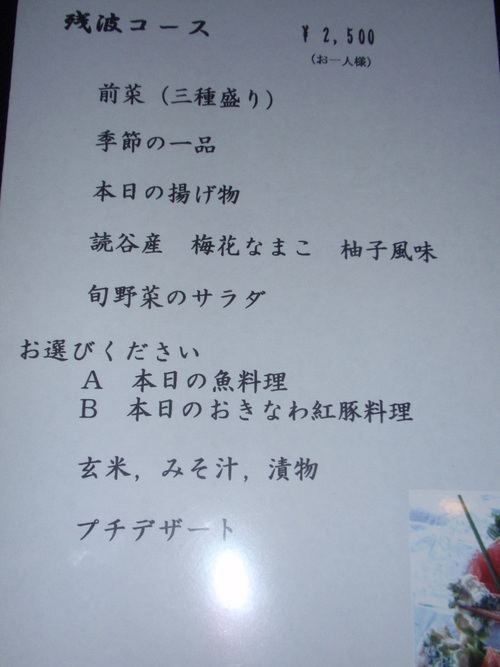 残波コース ¥2,500
(お一人様)
前菜（三種盛り）
季節の一品
本日の揚げ物
読谷産　梅花なまこ　柚子風味
旬野菜のサラダ
お選びください
A　本日の魚料理
B　本日のおきなわ紅豚料理
玄米，みそ汁，漬物
プチデザート